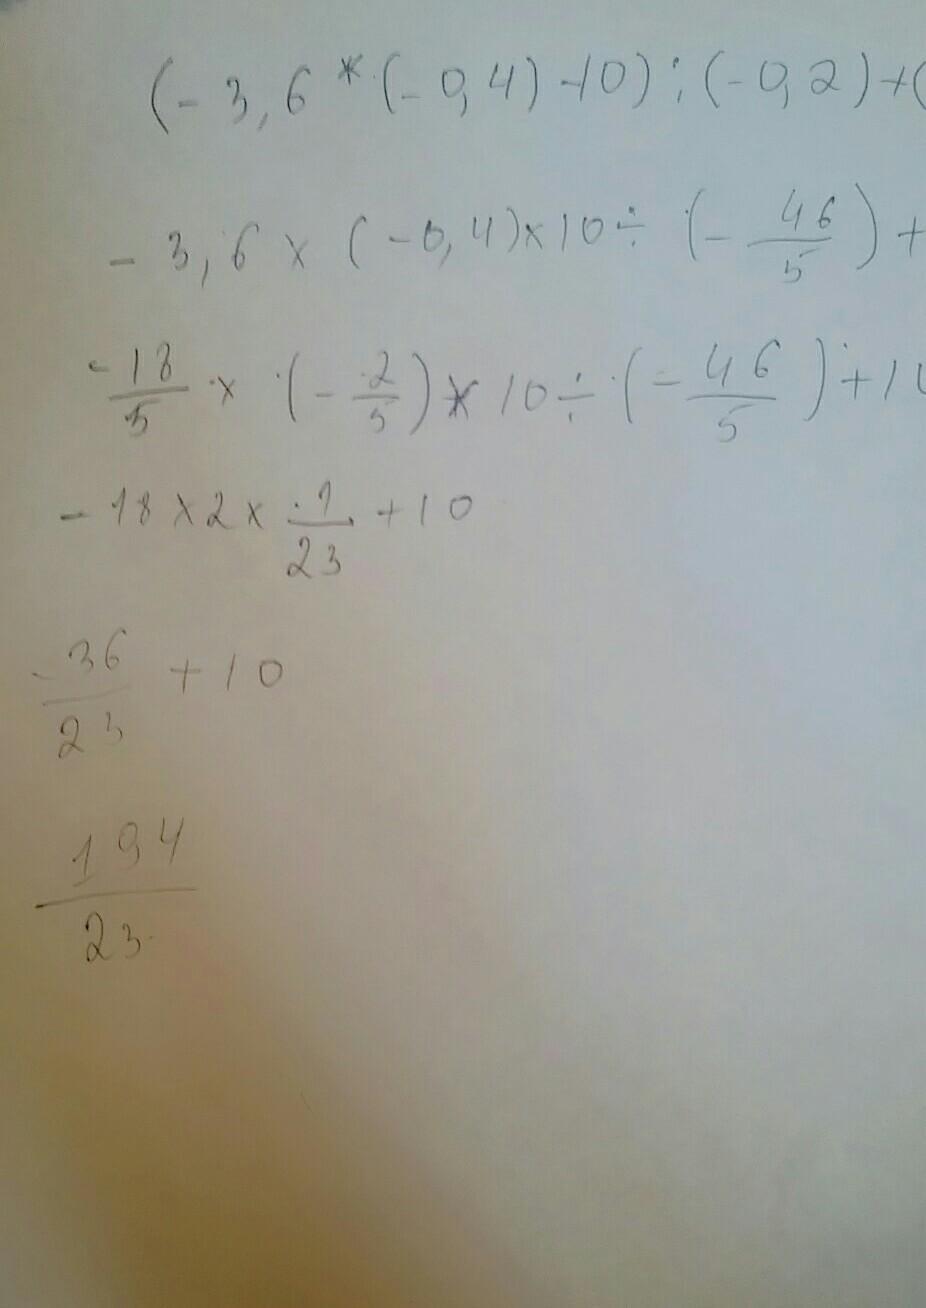 (-3,6*(-0,4)-10):(-0,2)+(
-3,6×(-0,4)×10÷(-46/5)+
-18/5×(-2/5)×10÷(-46/5)+10
-18×2×1/23+10
-36/23+10
194/23